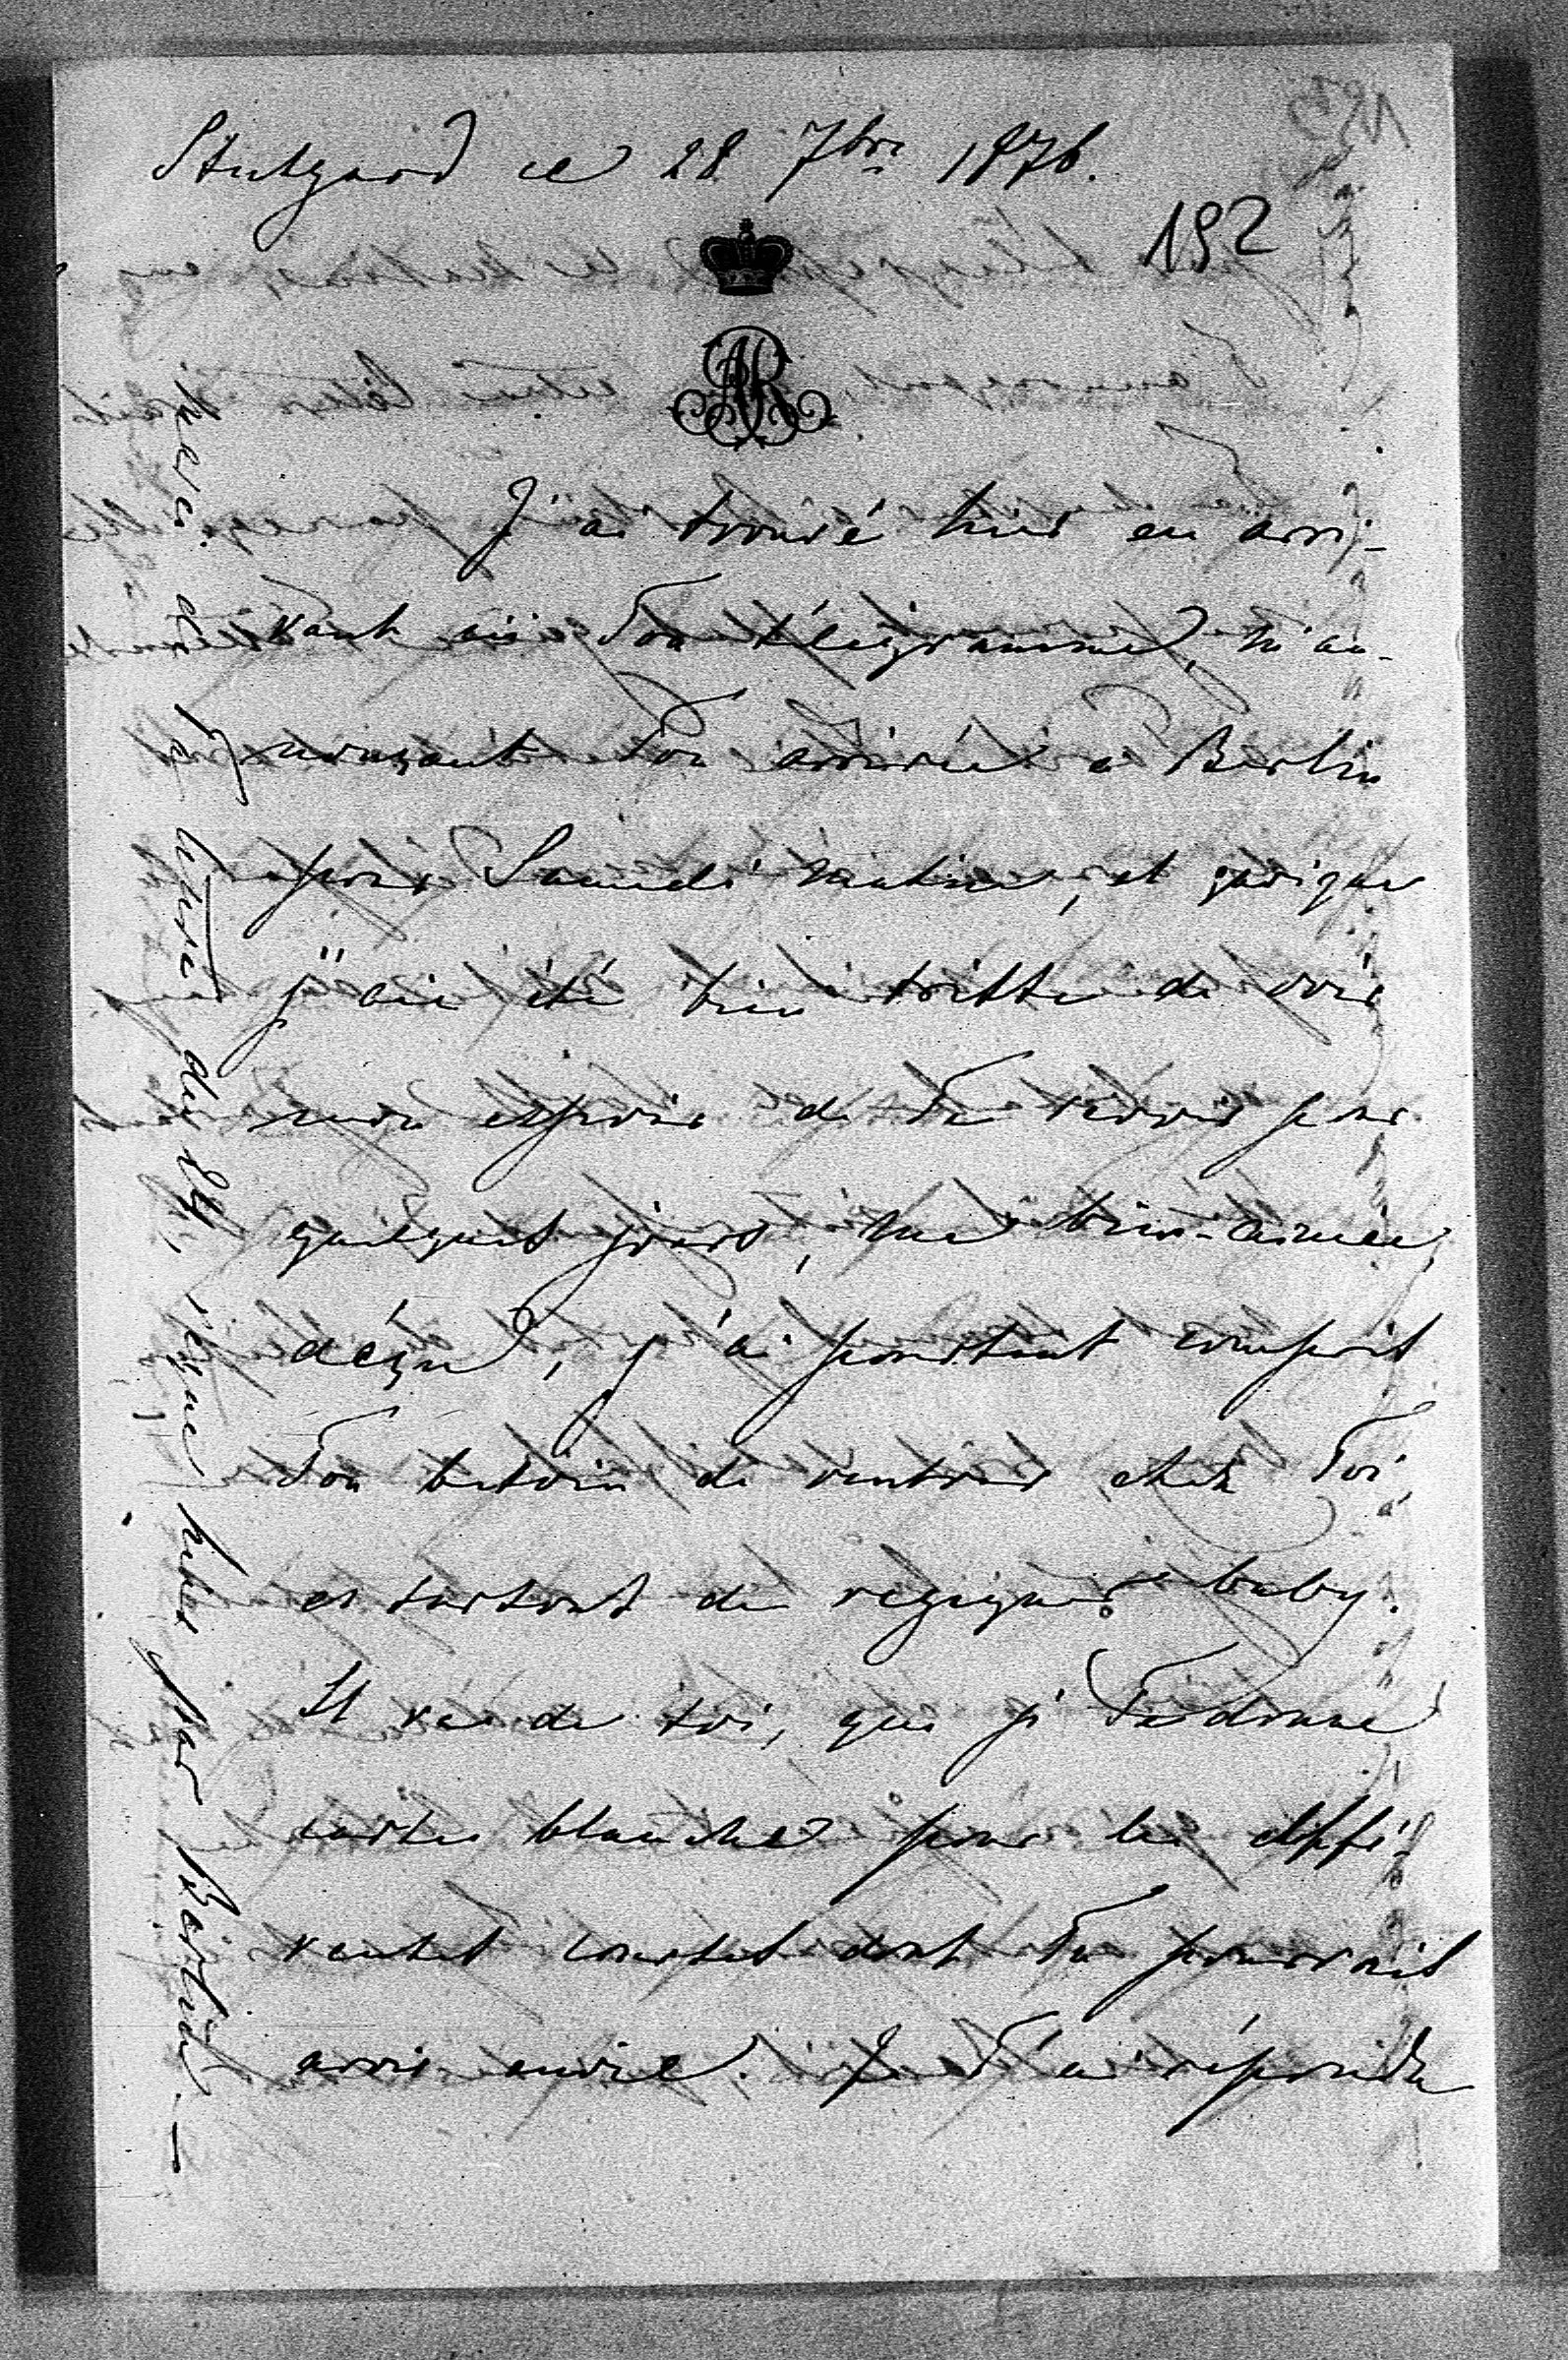 Stutgard ce 28 7bre 1876.
192
AR
J'ai trouvé hier en arri-
vant ici Ton télégramme, m'an-
nonçant Ton arrivée à Berlin
pour Samedi matin, et quoique
j'aie été bien triste de voir
mon espoir de Te revoir pour
quelques jours, ma bien-aimée,
déçu, j'ai pourtant compris
Ton besoin de rentrer chez Toi
et surtout de rejoindre baby.
Il va de soi, que je Te donne
cartes blanches pour les
courses dont Tu pourrais
avoir envie. Je T'ai répondu
lettre du 24, reçue hier par Berlin. —